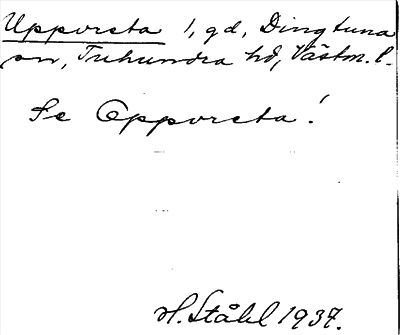 Upporsta 1, gd, Dingtuna
sn, Tuhundra hd, Västm. l.
Se Opporsta!
H. Ståhl 1937.